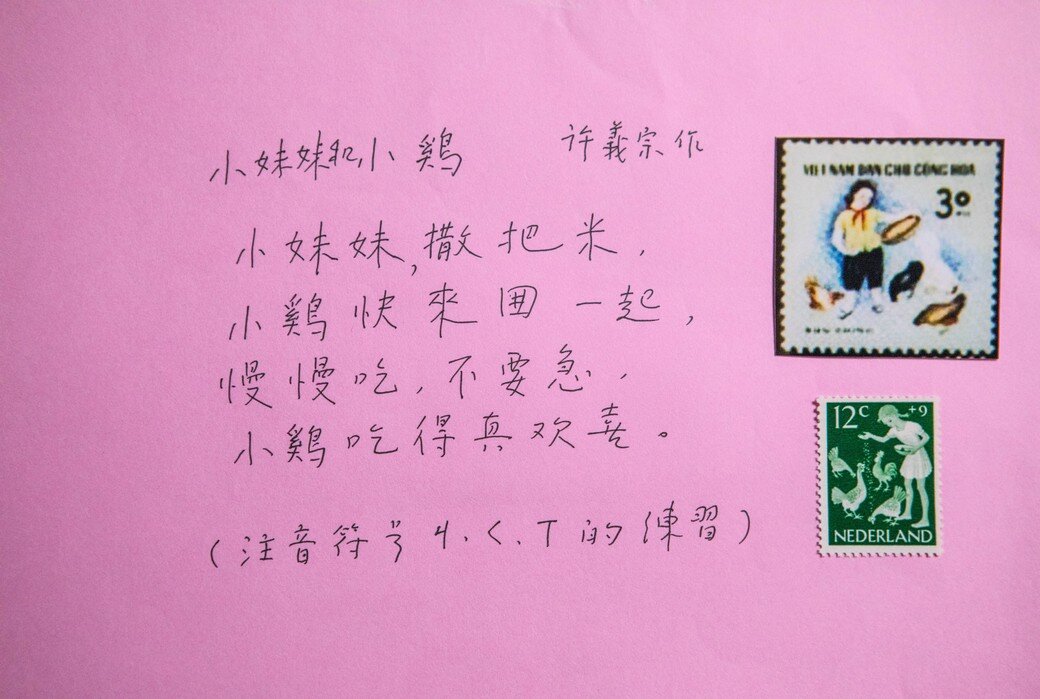 小妹妹和小鷄 許義宗作
小妹妹,撒把米,
小鷄快來囲一起,
慢慢吃,不要急,
小鷄吃得真欢喜。
(注音符号ㄐ、ㄑ、ㄒ的練習)
VIET NAM DAN CHU CONG HOA
30
12c +9
NEDERLAND